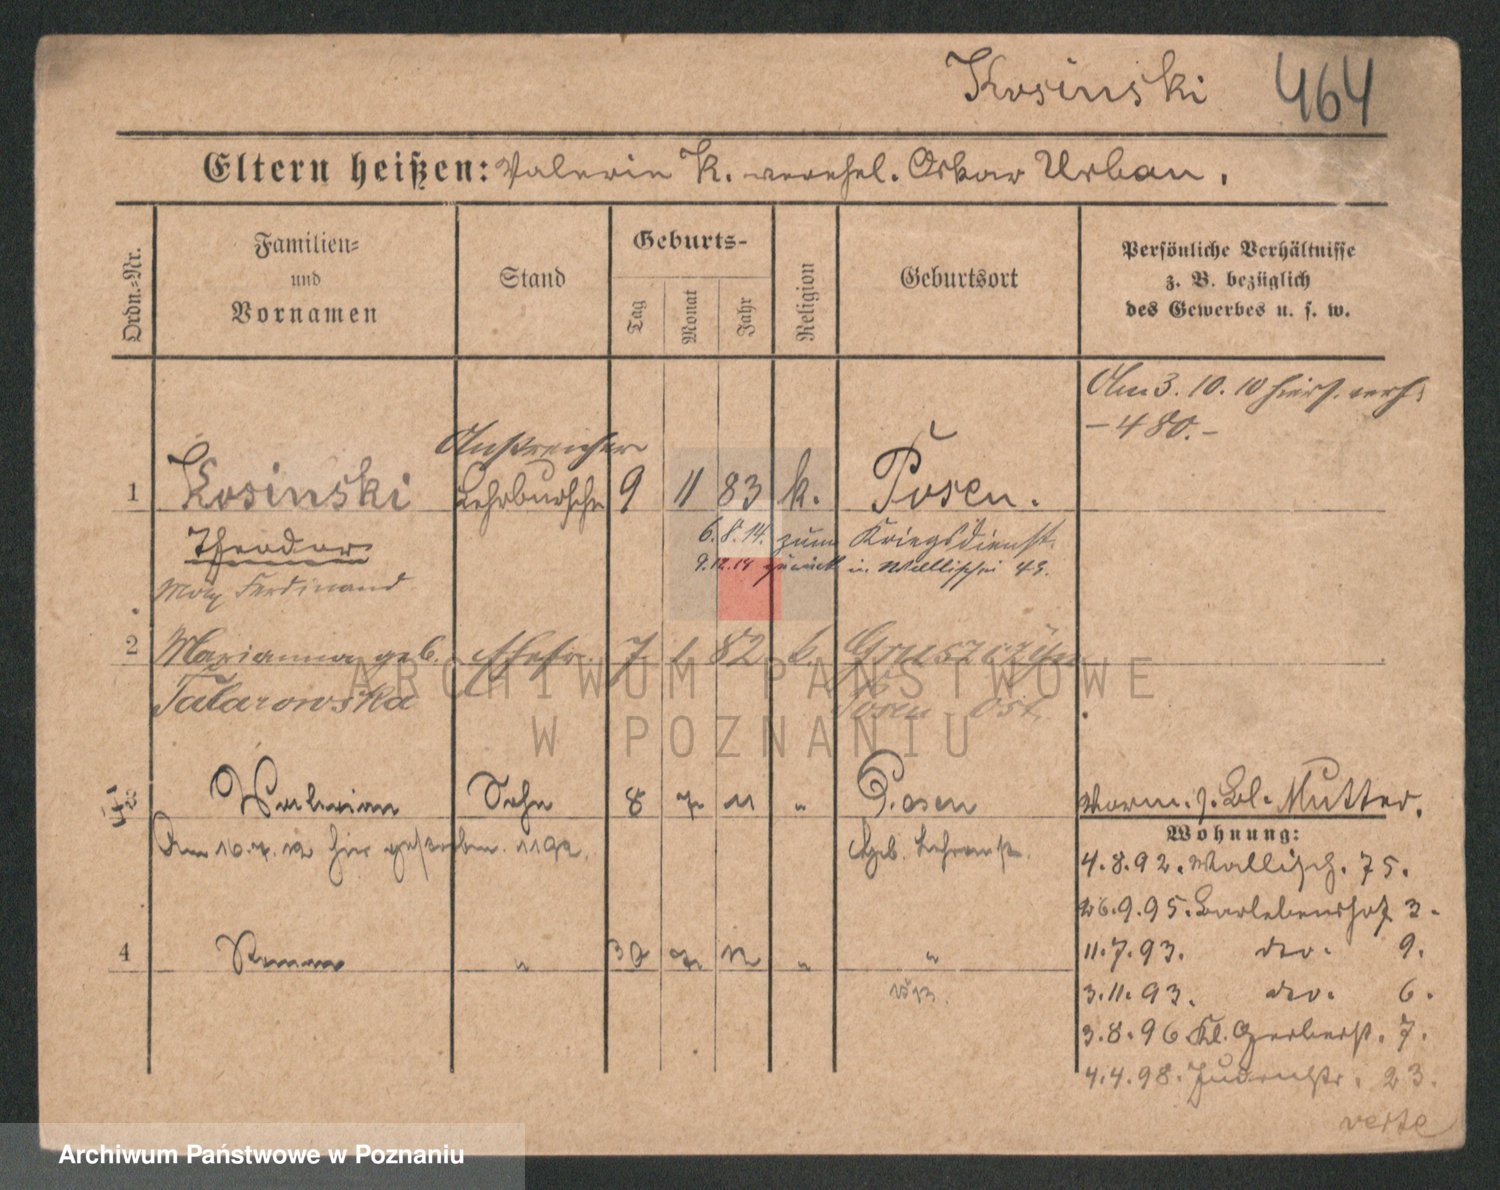 Kosinski 464
Eltern heißen: Valerin K. verehel. Oskar Urban.
Ordn.-Nr.
Familien-
und
Vornamen
Stand
Geburts-
Tag
Monat
Jahr
Religion
Geburtsort
Persönliche Verhältnisse
z. B. bezüglich
des Gewerbes u. s. w.
Am 3. 10. 10 hiers. verh.
-480.-
Anstreicher
1 Kosinski Lehrbursche 9 11 83 k. Posen.
Theodor
6.8.14. zum Kriegsdienst.
9.12.14 zurück in Wallischei 43.
Ferdinand
2 Marianna geb. Ehefr. 7 1 82 k. Gruszczyn
Tatarowska Posen Ost.
Sohn 8 7 11 " Posen
Vorm. s. Bl. Mutter.
Am 16.7.12 hier gestorben. 1192.
Geb.
Wohnung:
4.8.92. Wallisch. 75.
26.9.95. Barlebenshof 3.
4 " 30 7 12 " "
11.7.93. do. 9.
3.11.93. do. 6.
3.8.96 Kl. Gerberst. 7.
4.4.98. Judenstr. 23.
verte
ARCHIWUM PAŃSTWOWE
W POZNANIU
Archiwum Państwowe w Poznaniu